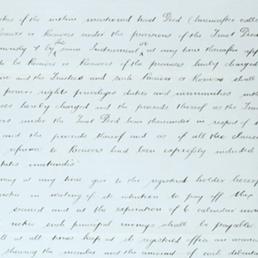 of the within mentioned Trust Deed (hereinafter called
under the provisions of the Trust Deed
& by the same Instrument or may have thereafter
to be Receiver or Receivers of the premises hereby charged
and the Trustees and such Receiver or Receivers shall
power right privileges duties and immunities
hereby charged and the proceeds thereof as the Trustees
under the Trust Deed have thereunder in respect of
and the proceeds thereof and as if all the clauses
to Receivers had been expressly included
mutandis
at any time give to the registered holder hereof
notice in writing of its intention to pay off this
secured and at the expiration of 6 calendar months
notice such principal moneys shall be payable
shall at all times keep at its registered office an
showing the number and the amount of each debenture